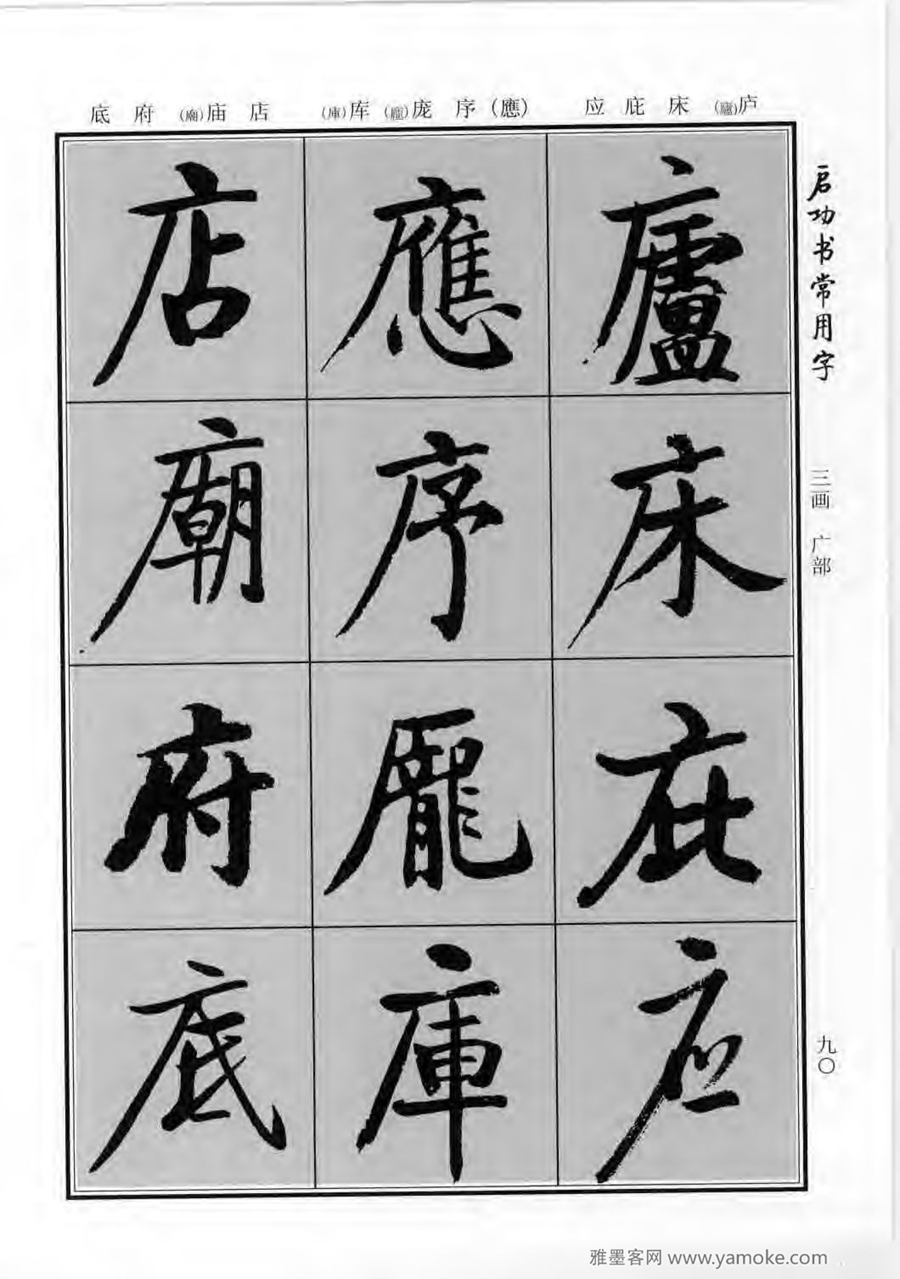 底 府 (廟)庙 店
(庫)库 (龐)庞 序 (應)
应 庇 床 (廬)庐
启功书常用字
三画 广部
九〇
廬
床
庇
应
應
序
龐
庫
店
廟
府
底
雅墨客网 www.yamoke.com